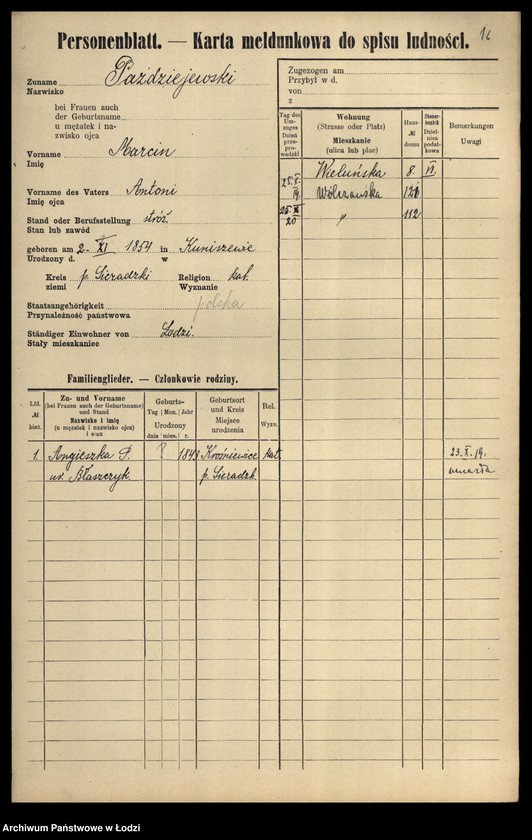 Personenblatt. — Karta meldunkowa do spisu ludności.
Zuname Paździejewski
Nazwisko
bei Frauen auch
der Geburtsname
u mężatek i na-
zwisko ojca
Vorname Marcin
Imię
Vorname des Vaters Antoni
Imię ojca
Stand oder Berufsstellung stróż
Stan lub zawód
geboren am 2 XI 1854 in Kuniszewie
Urodzony d. w
Kreis p. Sieradzki Religion kat.
ziemi Wyznanie
Staatsangehörigkeit polska
Przynależność państwowa
Ständiger Einwohner von Łodzi.
Stały mieszkaniec
Zugezogen am
Przybył w d.
von
z
Tag des Um-zuges Dzień prze-prowadzki
Wohnung (Strasse oder Platz) Mieszkanie (ulica lub plac)
Haus- № domu
Steuer-bezirk Dziel-nica podat-kowa
Bemerkungen Uwagi
Wieluńska 8. VI.
25. X. 19. Wólczańska
20 " 112
Familienglieder. — Członkowie rodziny.
Lfd. № bież.
Zu- und Vorname (bei Frauen auch der Geburtsname) und Stand Nazwisko i imię (u mężatek i nazwisko ojca) i stan
Geburts- Tag Mon. Jahr Urodzony dnia mies. r.
Geburtsort und Kreis Miejsce urodzenia
Rel. Wyzn.
1. Angieszka P. ? 1843 Kroźniewice kat. 23. X. 19.
ur. Błaszczyk. p. Sieradzk. umarła
Archiwum Państwowe w Łodzi